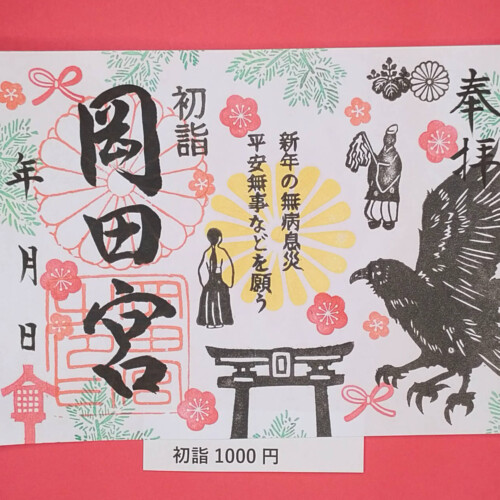 奉拝
新年の無病息災
平安無事などを願う
初詣
岡田宮
年 月 日
初詣 1000 円